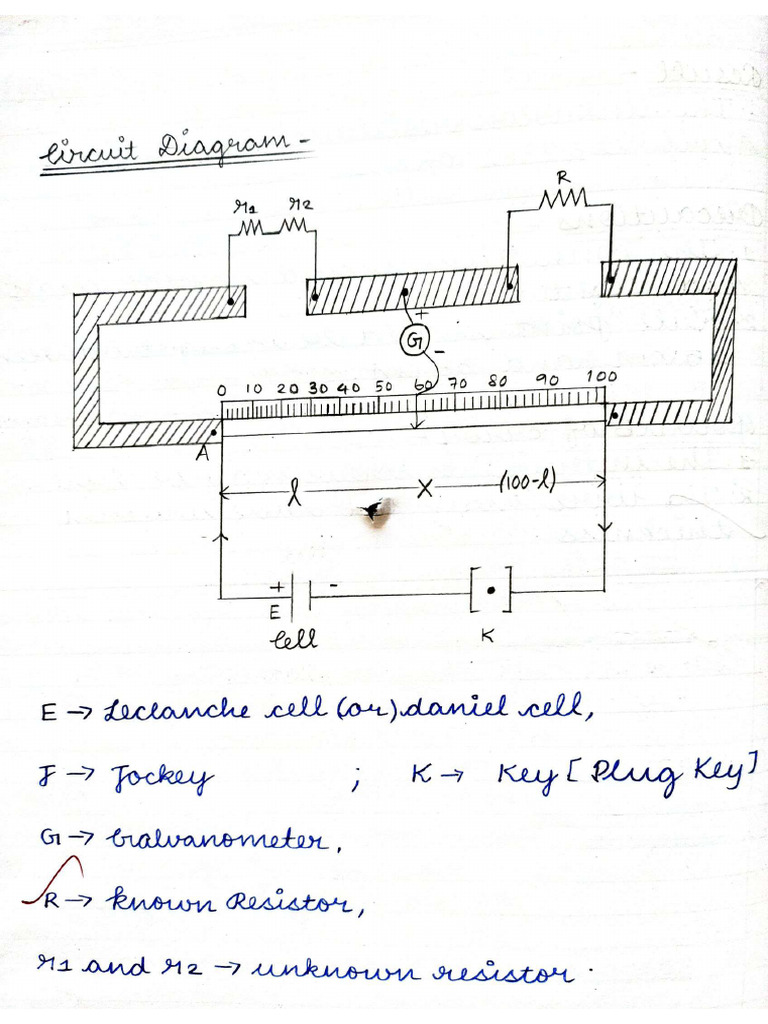 Circuit Diagram -
R
r1 r2
+
G
-
0 10 20 30 40 50 60 70 80 90 100
A
l X (100-l)
+ -
E
Cell K
E → Leclanche cell (or) daniel cell,
J → Jockey ; K → Key [Plug Key]
G → Galvanometer,
R → known Resistor,
r1 and r2 → unknown resistor.